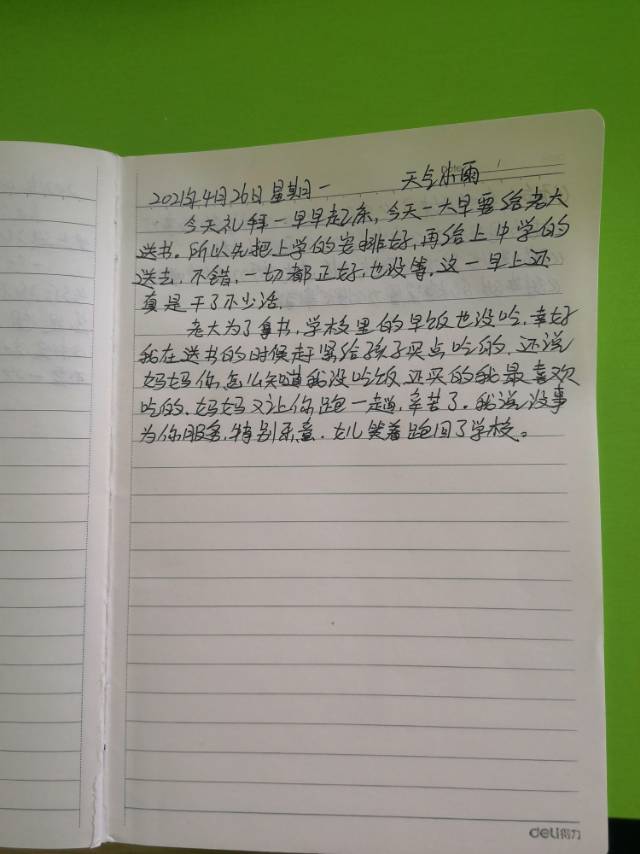 2021年4月26日星期一 天气小雨
今天礼拜一早早起床，今天一大早要给老大
送书。所以先把上学的安排好，再给上中学的
送去，不错，一切都正好，也没等，这一早上还
真是干了不少活，
老大为了拿书，学校里的早饭也没吃，幸好
我在送书的时候赶紧给孩子买点吃的，还说
妈妈你怎么知道我没吃饭，还买的我最喜欢
吃的，妈妈又让你跑一趟，辛苦了。我说没事
为你服务，特别乐意，女儿笑着跑回了学校。
deli得力